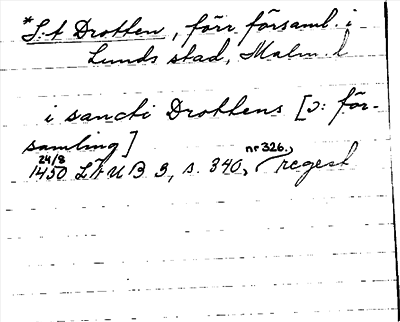 *S:t Drotten, förr församl. i
Lunds stad, Malm. l
i sancti Drottens [ɔ: för-
samling]
24/8
1450 LÄUB 3, s. 340, nr 326., regest